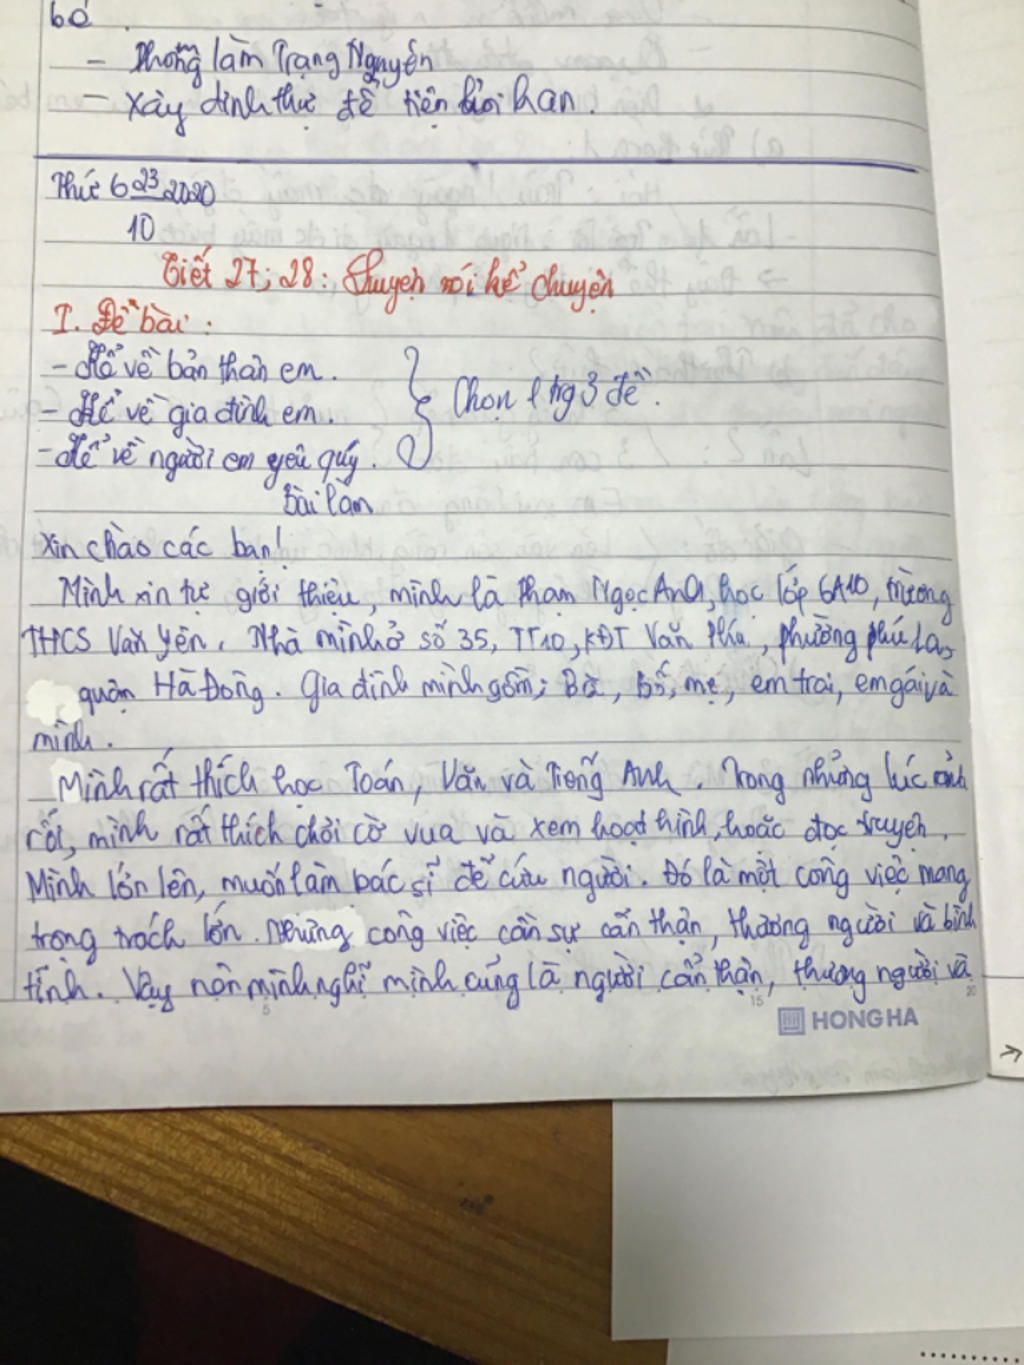 bố.
- Phong làm Trạng Nguyên
- Xây dinh thự để tiện hỏi han.
Thứ 6 23 2020
10
Tiết 27; 28: Luyện nói kể chuyện
I. Đề bài:
- Kể về bản thân em.
- Kể về gia đình em.
- Kể về người em yêu quý.
Chọn 1 trg 3 đề.
Bài làm
Xin chào các bạn!
Mình xin tự giới thiệu, mình là Phạm Ngọc Anh, học lớp 6A10, trường
THCS Văn Yên. Nhà mình ở số 35, TT10, KĐT Văn Phú, phường phú La,
quận Hà Đông. Gia đình mình gồm; Bà, bố, mẹ, em trai, em gái và
mình.
Mình rất thích học Toán, Văn và Tiếng Anh. Trong những lúc rảnh
rỗi, mình rất thích chơi cờ vua và xem hoạt hình, hoặc đọc truyện.
Mình lớn lên, muốn làm bác sĩ để cứu người. Đó là một công việc mang
trọng trách lớn. Nhưng công việc cần sự cẩn thận, thương người và bình
tĩnh. Vậy nên mình nghĩ mình cũng là người cẩn thận, thương người và
5 15 20
HONG HA